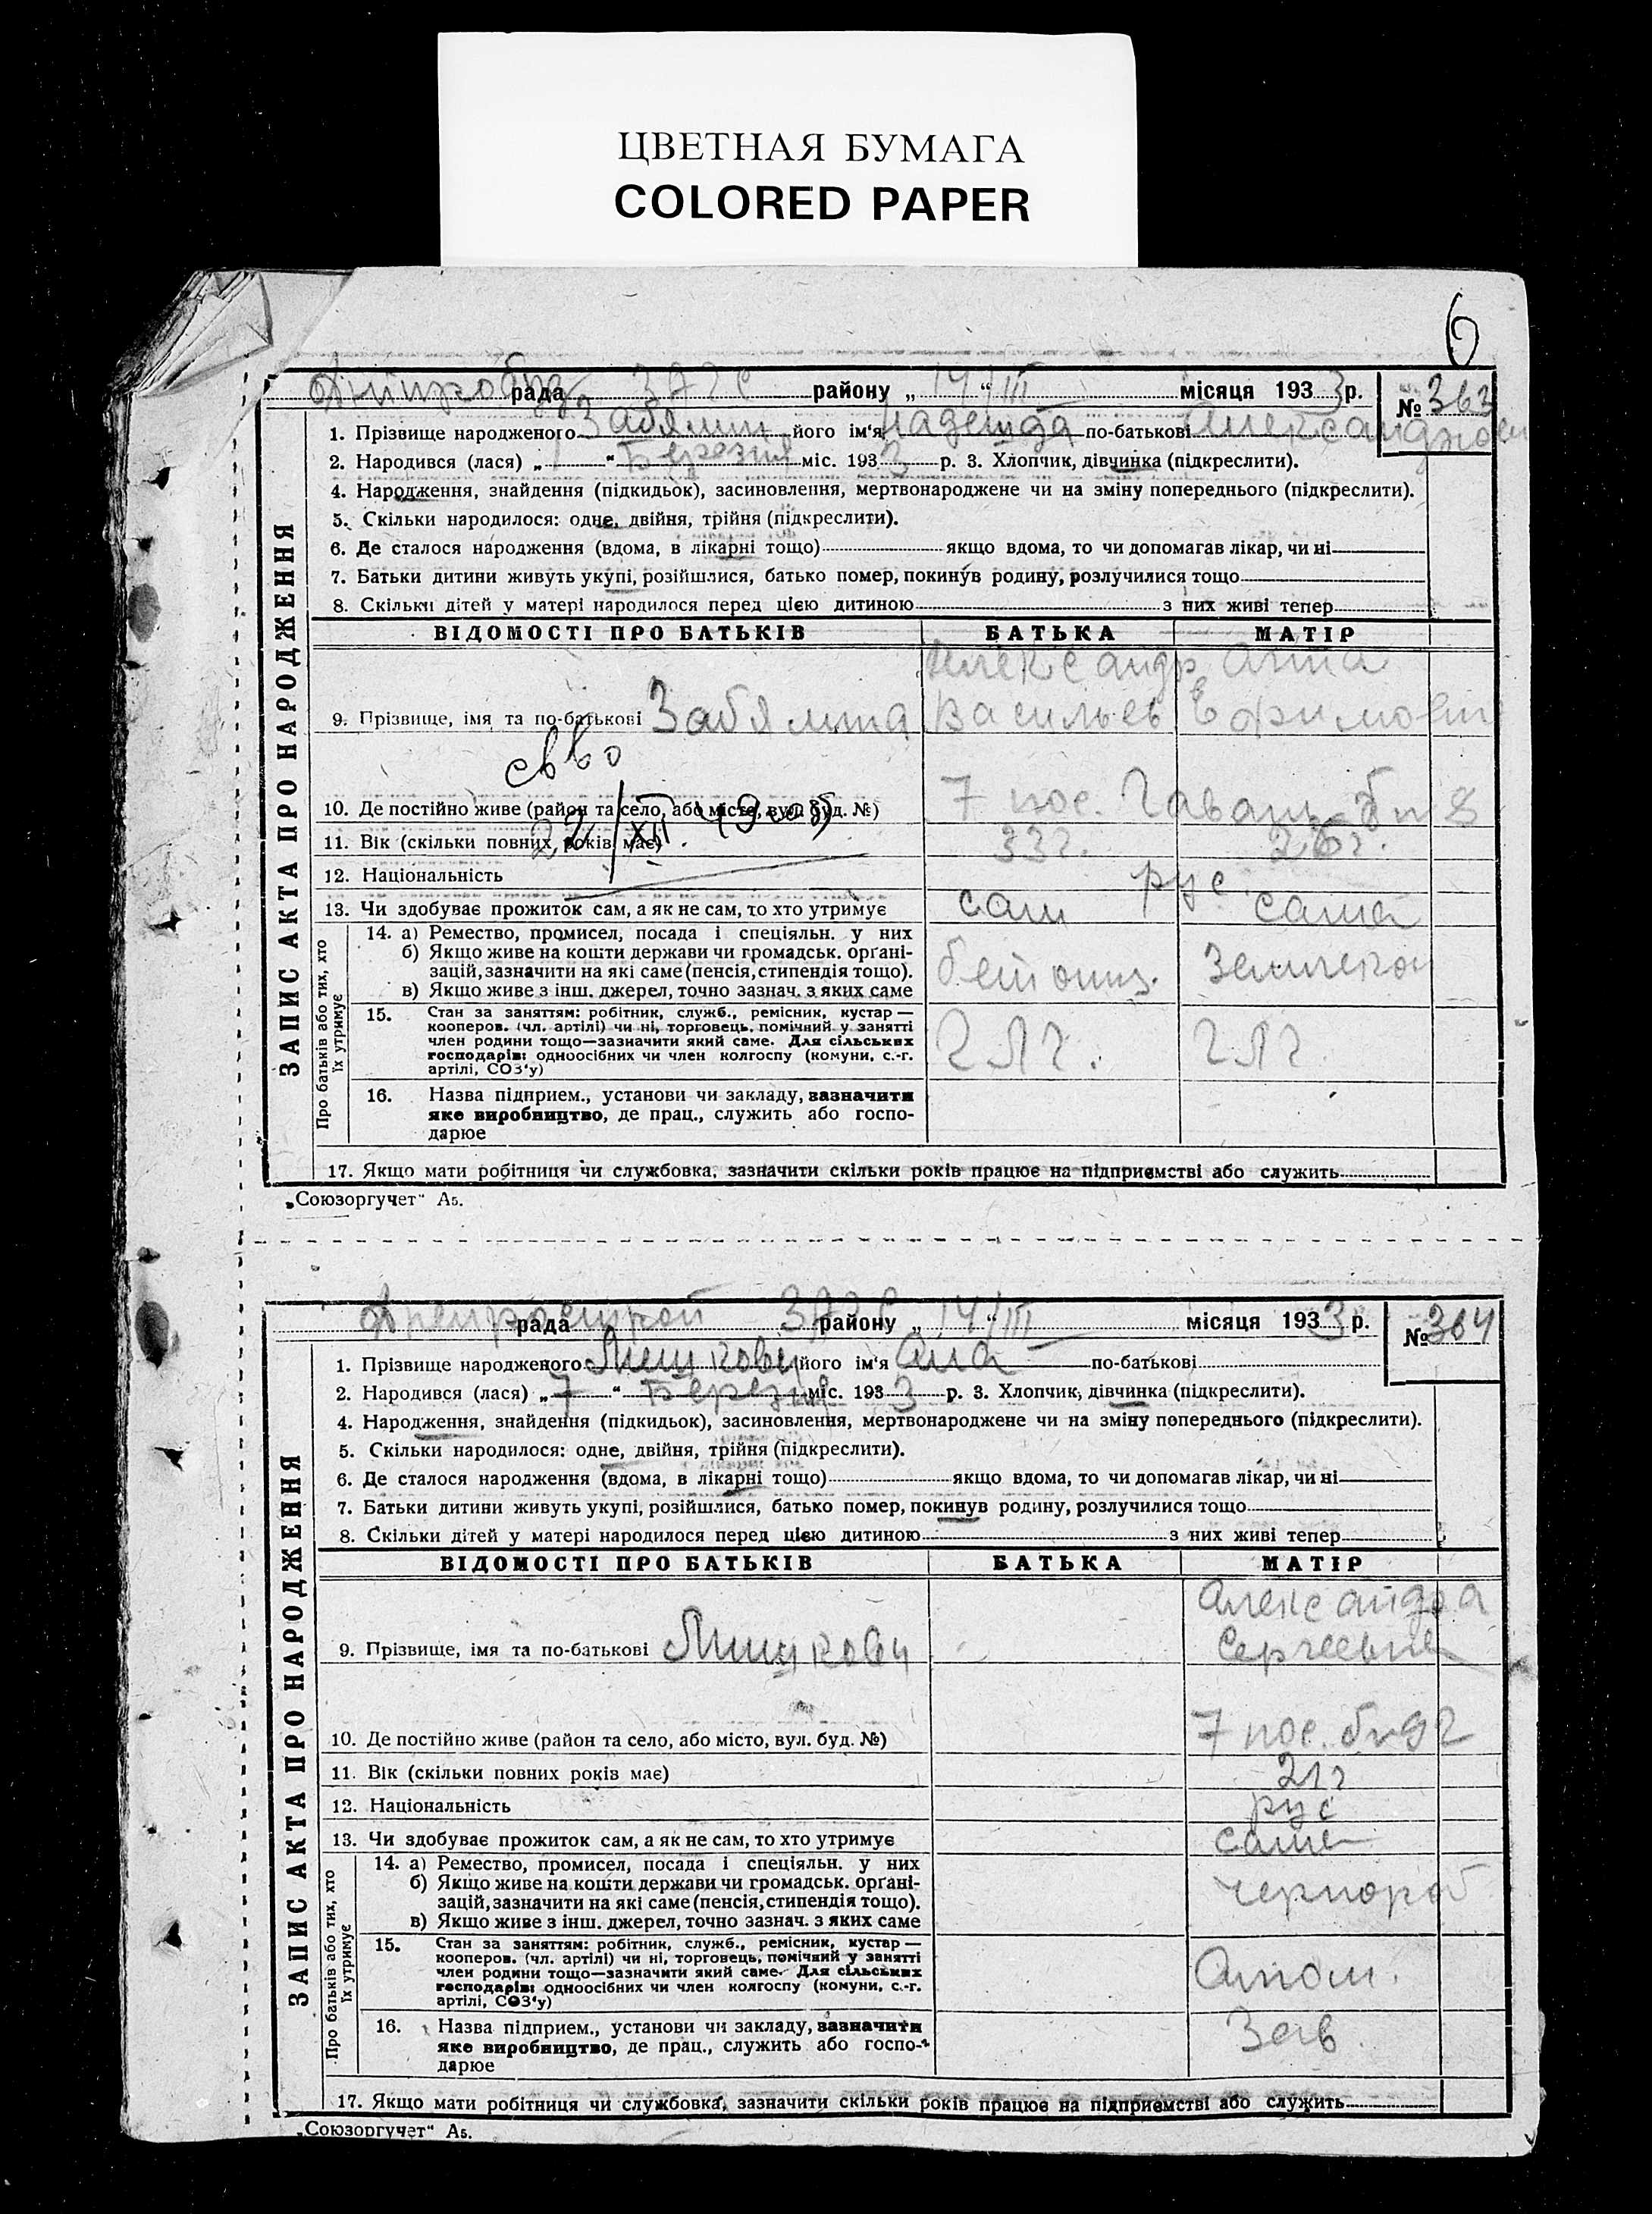 ЦВЕТНАЯ БУМАГА
COLORED PAPER
6
рада ЗАГС району „14/III“ місяця 1933 р. № 363
1. Прізвище народженого його ім'я Надежда по-батькові
2. Народився (лася) „ “ Березня міс. 1933 р. 3. Хлопчик, дівчинка (підкреслити).
4. Народження, знайдення (підкидьок), засиновлення, мертвонароджене чи на зміну попереднього (підкреслити).
5. Скільки народилося: одне, двійня, трійня (підкреслити).
6. Де сталося народження (вдома, в лікарні тощо) якщо вдома, то чи допомагав лікар, чи ні
7. Батьки дитини живуть укупі, розійшлися, батько помер, покинув родину, розлучилися тощо
8. Скільки дітей у матері народилося перед цією дитиною з них живі тепер
ЗАПИС АКТА ПРО НАРОДЖЕННЯ
ВІДОМОСТІ ПРО БАТЬКІВ БАТЬКА МАТІР
Александр Анна
9. Прізвище, імя та по-батькові Васильев
св во
10. Де постійно живе (район та село, або місто, вул. буд. №) 7 пос.
22/XII
11. Вік (скільки повних років має) 33г. 26г.
12. Національність рус
13. Чи здобуває прожиток сам, а як не сам, то хто утримує сам сама
Про батьків або тих, хто їх утримує
14. а) Ремество, промисел, посада і спеціяльн. у них
б) Якщо живе на кошти держави чи громадськ. органі-
зацій, зазначити на які саме (пенсія, стипендія тощо).
в) Якщо живе з інш. джерел, точно зазнач. з яких саме
15. Стан за заняттям: робітник, служб., ремісник, кустар —
кооперов. (чл. артілі) чи ні, торговець, помічний у занятті
член родини тощо—зазначити який саме. Для сільських
господарів: одноосібних чи член колгоспу (комуни, с.-г.
артілі, СОЗ'у)
16. Назва підприєм., установи чи закладу, зазначити
яке виробництво, де прац., служить або госпо-
дарює
17. Якщо мати робітниця чи службовка, зазначити скільки років працює на підприємстві або служить
„Союзоргучет“ А5.
рада ЗАГС району „14/III“ місяця 1933 р. № 364
1. Прізвище народженого його ім'я по-батькові
2. Народився (лася) „7“ Березня міс. 1933 р. 3. Хлопчик, дівчинка (підкреслити).
4. Народження, знайдення (підкидьок), засиновлення, мертвонароджене чи на зміну попереднього (підкреслити).
5. Скільки народилося: одне, двійня, трійня (підкреслити).
6. Де сталося народження (вдома, в лікарні тощо) якщо вдома, то чи допомагав лікар, чи ні
7. Батьки дитини живуть укупі, розійшлися, батько помер, покинув родину, розлучилися тощо
8. Скільки дітей у матері народилося перед цією дитиною з них живі тепер
ЗАПИС АКТА ПРО НАРОДЖЕННЯ
ВІДОМОСТІ ПРО БАТЬКІВ БАТЬКА МАТІР
Александра
9. Прізвище, імя та по-батькові
10. Де постійно живе (район та село, або місто, вул. буд. №) 7 пос.
11. Вік (скільки повних років має) 21г
12. Національність рус
13. Чи здобуває прожиток сам, а як не сам, то хто утримує сама
Про батьків або тих, хто їх утримує
14. а) Ремество, промисел, посада і спеціяльн. у них
б) Якщо живе на кошти держави чи громадськ. органі-
зацій, зазначити на які саме (пенсія, стипендія тощо).
в) Якщо живе з інш. джерел, точно зазнач. з яких саме
чернороб
15. Стан за заняттям: робітник, служб., ремісник, кустар —
кооперов. (чл. артілі) чи ні, торговець, помічний у занятті
член родини тощо—зазначити який саме. Для сільських
господарів: одноосібних чи член колгоспу (комуни, с.-г.
артілі, СОЗ'у)
16. Назва підприєм., установи чи закладу, зазначити
яке виробництво, де прац., служить або госпо-
дарює
Зав
17. Якщо мати робітниця чи службовка, зазначити скільки років працює на підприємстві або служить
„Союзоргучет“ А5.